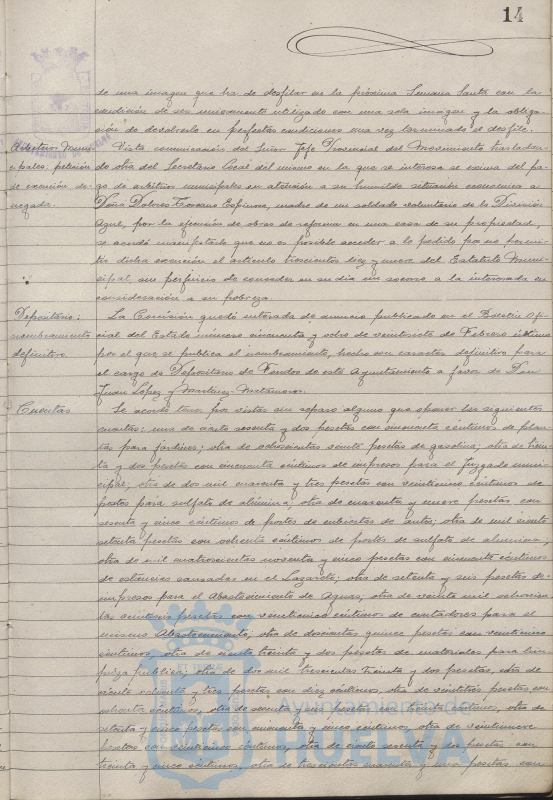 14
de una imagen que ha de desfilar en la próxima Semana Santa con la
condición de ser unicamente utilizado con una sola imagen y la obliga-
ción de devolverlo en perfectas condiciones una vez terminado el desfile.
Arbitrios Muni-
cipales, petición
de exención de-
negada.
Vista comunicación del Señor Jefe Provincial del Movimiento trasladan-
do otra del Secretario Local del mismo en la que se interesa se exima del pa-
go de arbitrios municipales en atención a su humilde situación economica a
Doña Dolores Toscano Espinosa, madre de un soldado voluntario de la División
Azul, por la ejecución de obras de reforma en una casa de su propiedad,
se acordó manifestarle que no es posible acceder a lo pedido por no permi-
tir dicha exención el articulo trescientos diez y nueve del Estatuto Muni-
cipal, sin perjuicio de conceder en su dia un socorro a la interesada en
consideración a su pobreza.
Depositario:
nombramiento
definitivo.
La Comisión quedó enterada de anuncio publicado en el Boletín Ofi-
cial del Estado número cincuenta y ocho de veintisiete de Febrero último
por el que se publica el nombramiento, hecho con caracter definitivo para
el cargo de Depositario de Fondos de este Ayuntamiento a favor de Don
Juan Lopez y Martinez-Matamoros.
Cuentas
Se acordó tener por vistas sin reparo alguno que oponer las siguientes
cuentas: una de ciento sesenta y dos pesetas con cincuenta céntimos de plan-
tas para jardines; otra de ochocientas veinte pesetas de gasolina; otra de trein-
ta y dos pesetas con cincuenta céntimos de impresos para el Juzgado muni-
cipal; otra de dos mil cuarenta y tres pesetas con veinticinco céntimos de
portes para sulfato de alúmina; otra de cuarenta y nueve pesetas con
sesenta y cinco céntimos de portes de cubiertas de autos; otra de mil ciento
setenta pesetas con ochenta céntimos de portes de sulfato de alumina;
otra de mil cuatrocientas noventa y cinco pesetas con cincuenta céntimos
de estancias causadas en el Lazareto; otra de setenta y seis pesetas de
impresos para el Abastecimiento de Aguas; otra de veinte mil ochocien-
tas pesetas con veinticinco céntimos de contadores para el
mismo Abastecimiento; otra de doscientas quince pesetas con veinticinco
céntimos, otra de ciento treinta y dos pesetas de materiales para lim-
pieza publica; otra de dos mil trescientas treinta y dos pesetas, otra de
ciento ochenta y tres pesetas con diez céntimos, otra de veintitres pesetas con
ochenta céntimos, otra de sesenta y seis pesetas con treinta céntimos, otra de
setenta y cinco pesetas con cincuenta y cinco céntimos, otra de veintinueve
pesetas con veinticinco céntimos, otra de ciento sesenta y dos pesetas con
treinta y cinco céntimos, otra de trescientas cuarenta y una pesetas con
Ayuntamiento de
HUELVA